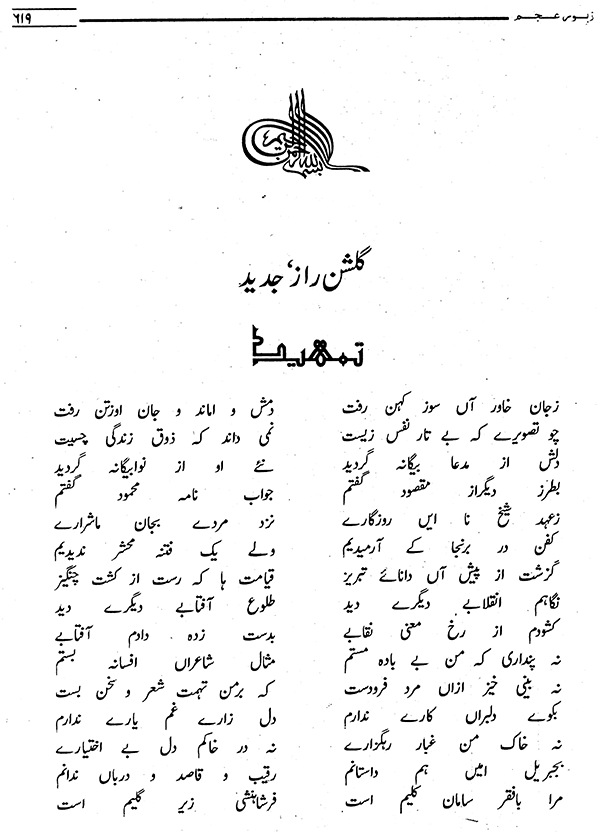 زبور عجم
٦١٩
بسم اللہ الرحمن الرحیم
گلشن راز، جدید
تمہید
زجان خاور آں سوز کہن رفت دمش و اماند و جان اوزتن رفت
چو تصویرے کہ بے تار نفس زیست نمی داند کہ ذوق زندگی چسیت
دلش از مدعا بیگانہ گردید نئے او از نوابیگانہ گردید
بطرز دیگراز مقصود گفتم جواب نامہ محمود گفتم
زعہد شیخ تا ایں روزگارے نزد مردے بجان ماشرارے
کفن در برنجا کے آرمیدیم ولے یک فتنہ محشر ندیدیم
گزشت از پیش آں دانائے تبریز قیامت ہا کہ رست از کشت چنگیز
نگاہم انقلابے دیگرے دید طلوع آفتابے دیگرے دید
کشودم از رخ معنی نقابے بدست زدہ دادم آفتابے
نہ پنداری کہ من بے بادہ مستم مثال شاعراں افسانہ بستم
نہ بینی خیز ازاں مرد فرودست کہ برمن تہمت شعر و سخن بست
بکوے دلبراں کارے ندارم دل زارے غم یارے ندارم
نہ خاک من غبار رہگزارے نہ در خاکم دل بے اختیارے
بجبریل امیں ہم داستانم رقیب و قاصد و درباں ندانم
مرا بافقر سامان کلیم است فرشاہنشی زیر گلیم است